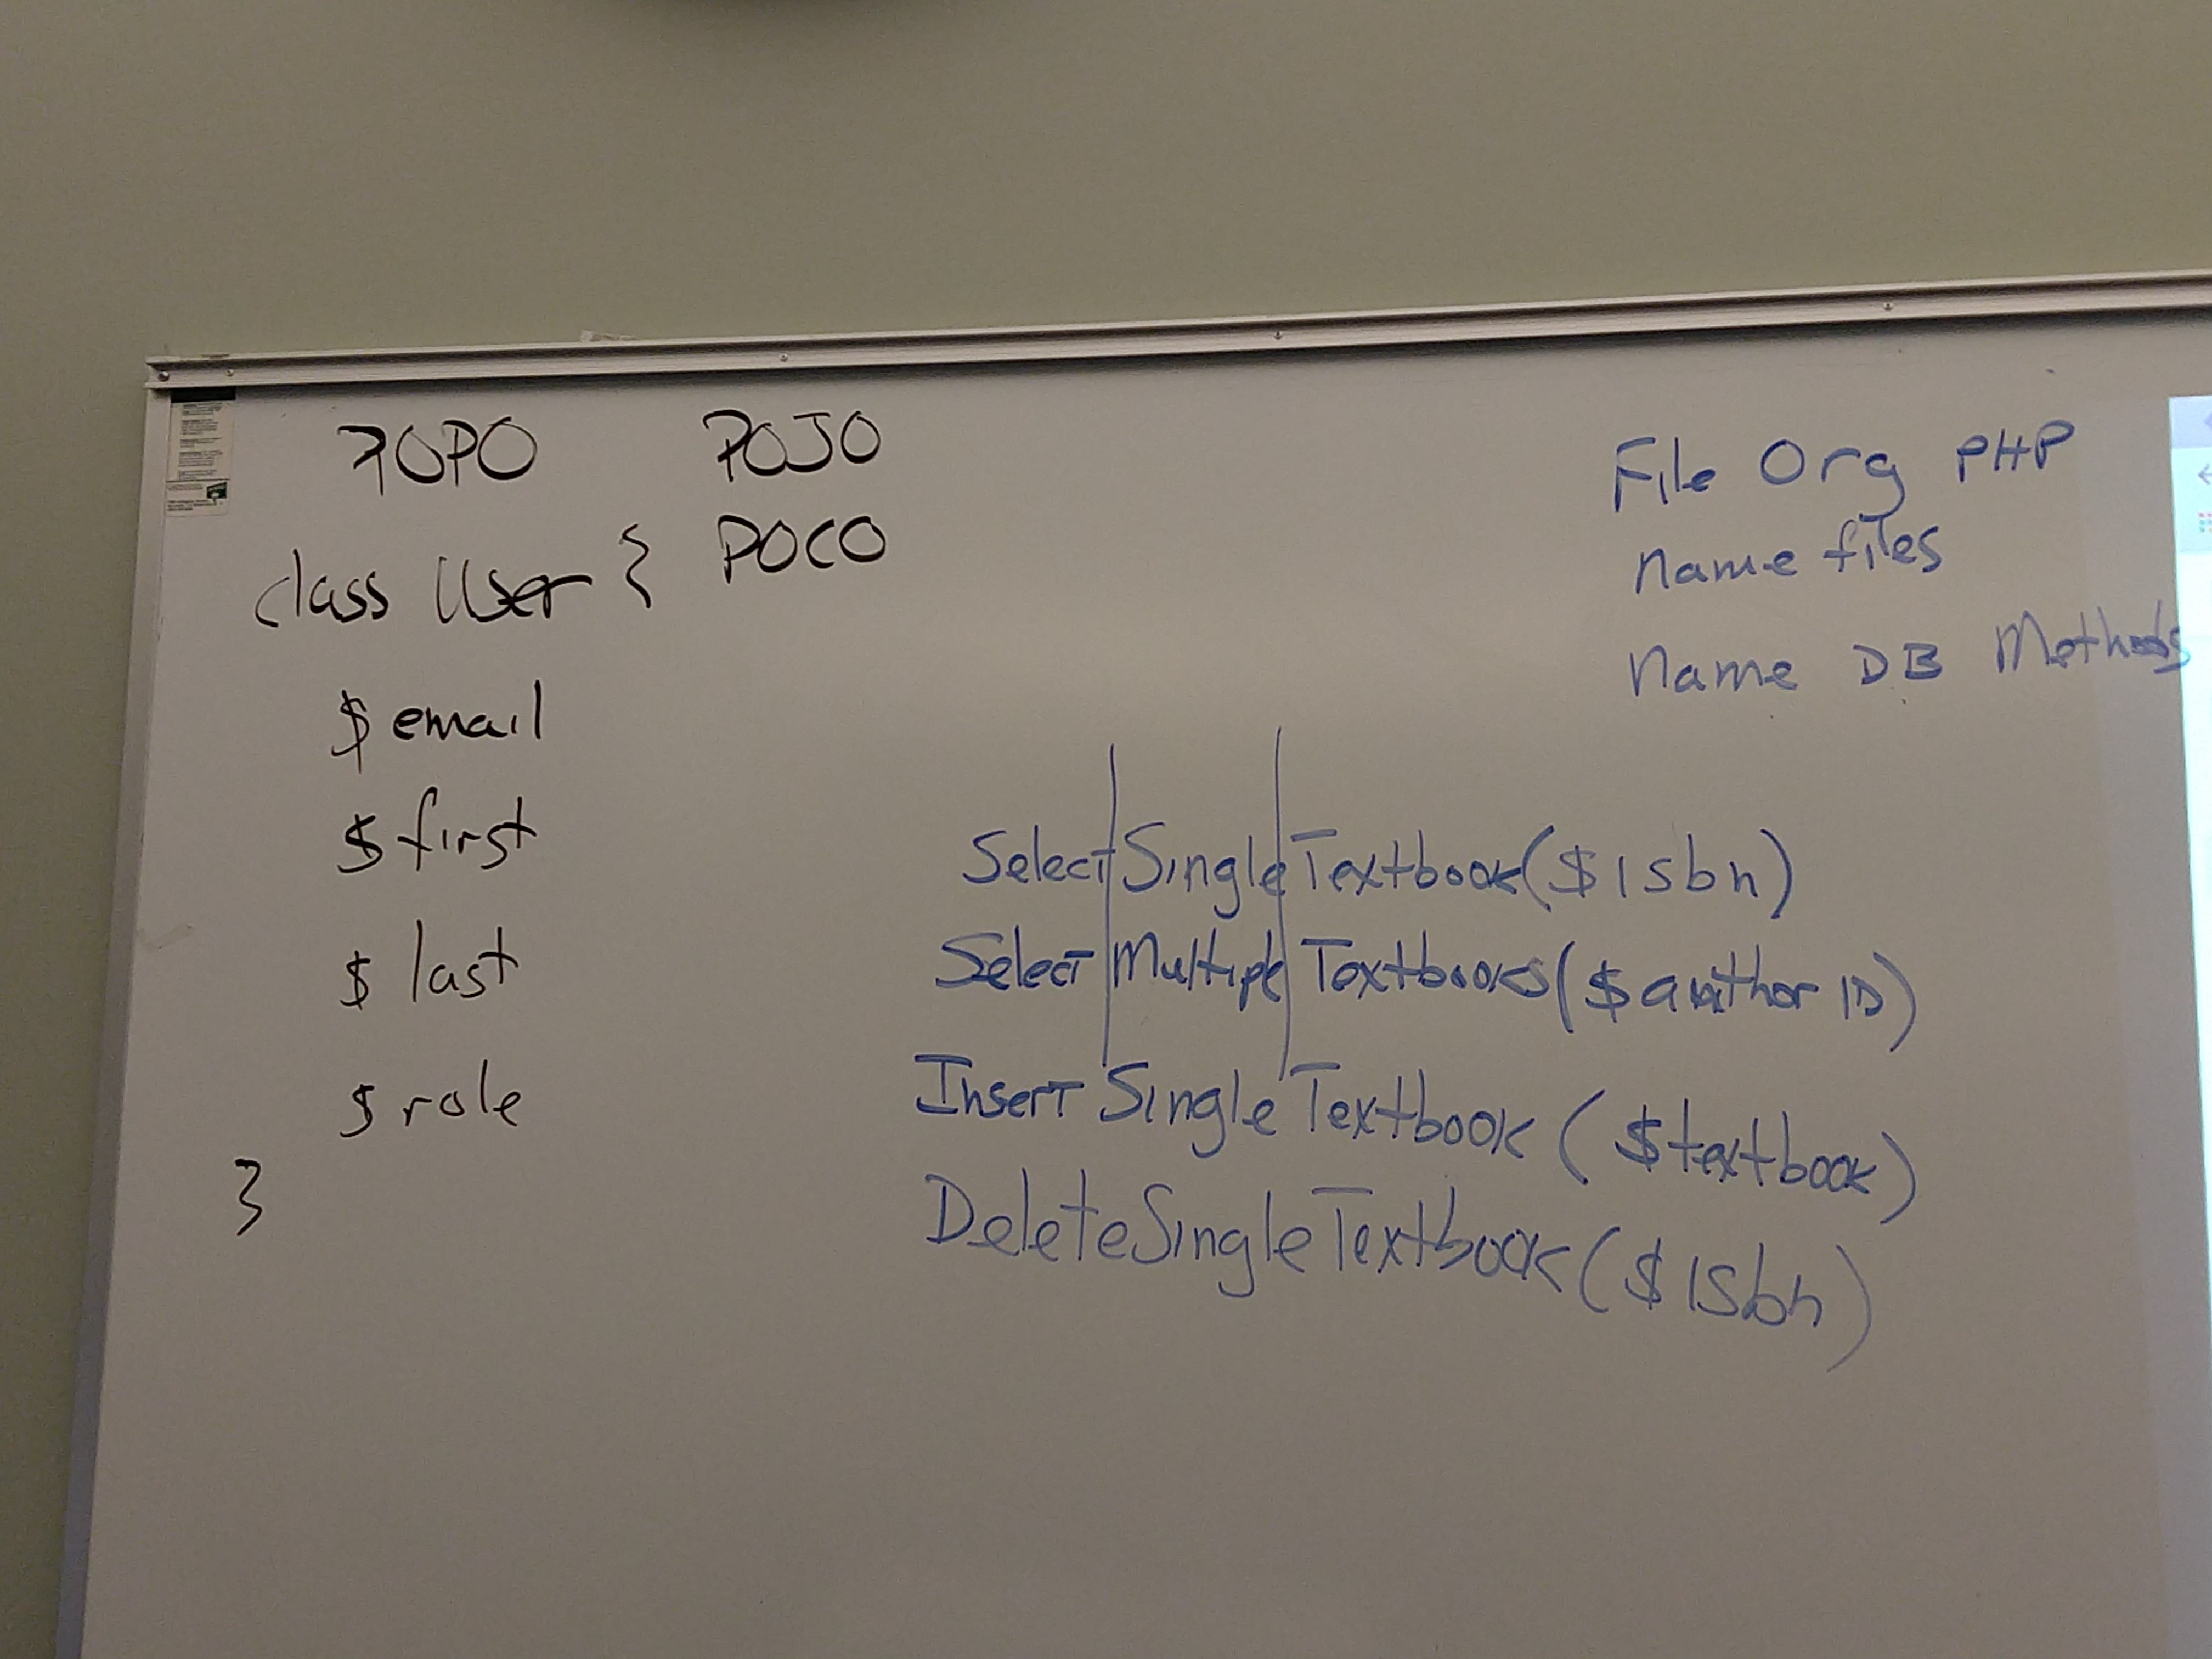 POPO POJO
POCO
class User {
$email
$first
$last
$role
}
File Org PHP
Name files
Name DB Methods
SelectSingleTextbook($isbn)
Select Multiple Textbooks($authorID)
InsertSingleTextbook($textbook)
DeleteSingleTextbook($isbn)